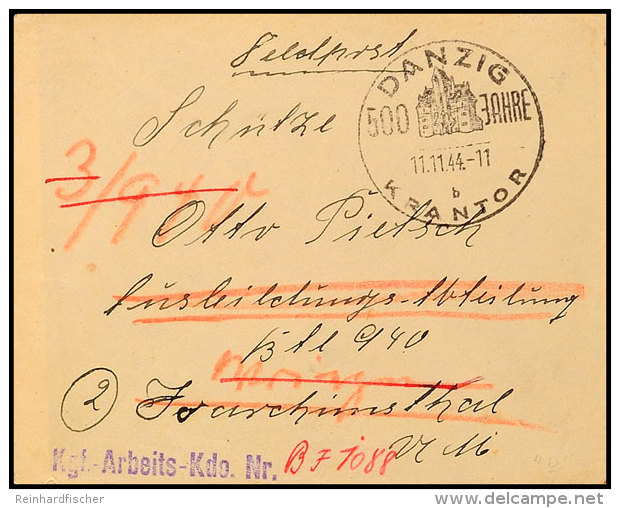 Feldpost
DANZIG
500 JAHRE
11.11.44.-11
b
KRANTOR
Schütze
3/940
Otto Pietsch
Ausbildungs-Abteilung
Btl 940
2 Joachimsthal
UM
Kgf.-Arbeits-Kdo. Nr. BF 1088
Reinhardfischer
www.delcampe.net